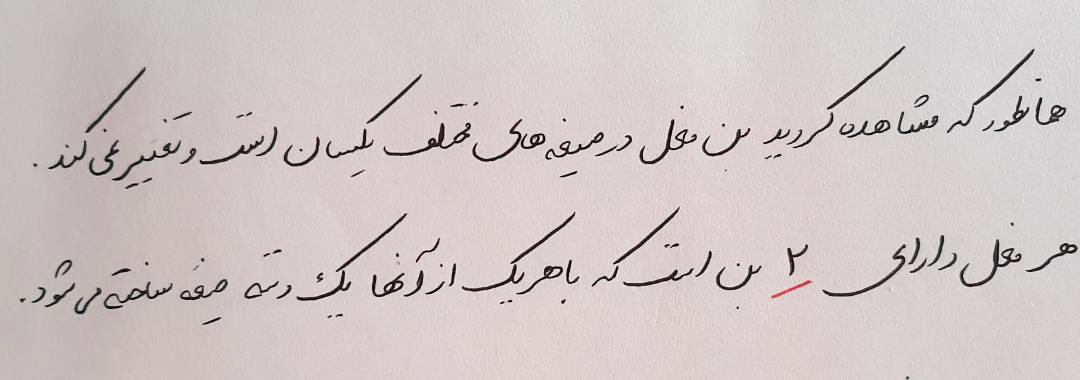 همانطور که مشاهده کردید بن فعل در صیغه های مختلف یکسان است و تغییر نمی کند.
هر فعل دارای ۲ بن است که با هر یک از آنها یک دسته صیغه ساخته می شود.